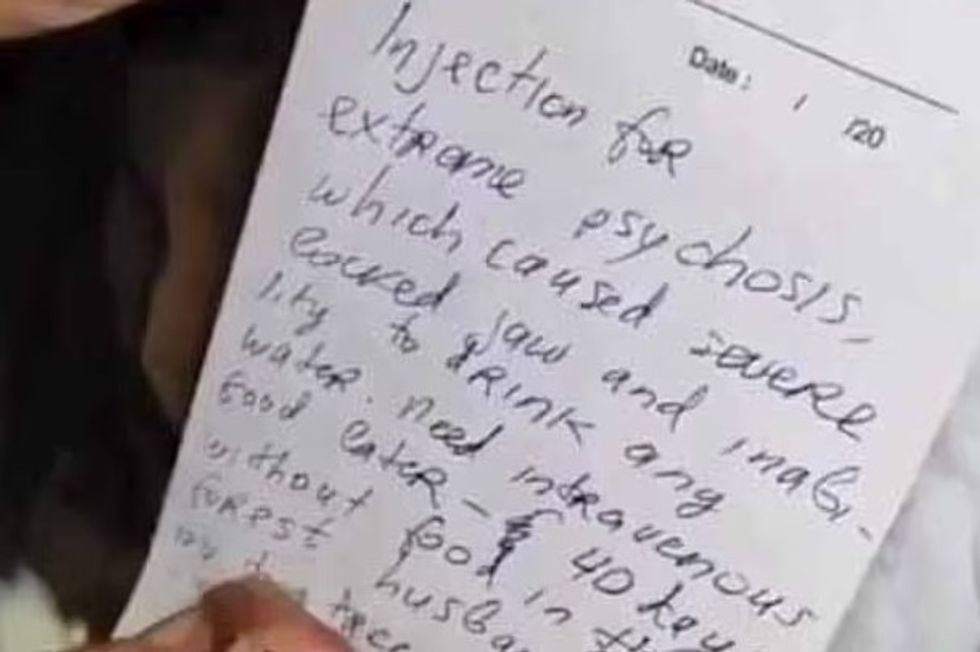 Date : / /20
Injection for
extreme psychosis
which caused severe
locked jaw and inabi-
lity to drink any
water. need intravenous
food later - 40
without food in
forest husba